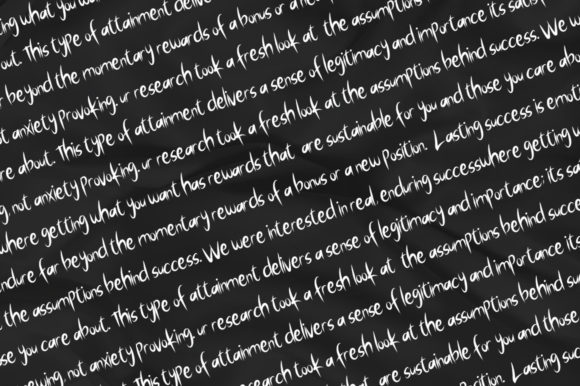 ting what you want
out. This type of attainment deliver
r beyond the momentary rewards of a bonus or a new
ot anxiety provoking, ur research took a fresh look at the assumptions
re about. This type of attainment delivers a sense of legitimacy and importance its satisf
ng, not anxiety provoking, ur research took a fresh look at the assumptions behind success. We w
where getting what you want has rewards that are sustainable for you and those you care abou
ndure far beyond the momentary rewards of a bonus or a new position. Lasting success is emoti
the assumptions behind success. We were interested in real, enduring successwhere getting y
se you care about. This type of attainment delivers a sense of legitimacy and importance; its sa
ewing, not anxiety provoking, ur research took a fresh look at the assumptions behind succe
This type of attainment delivers a sense of legitimacy and importance its
took a fresh look at the assumptions behind su
are sustainable for you and those
position. Lasting success